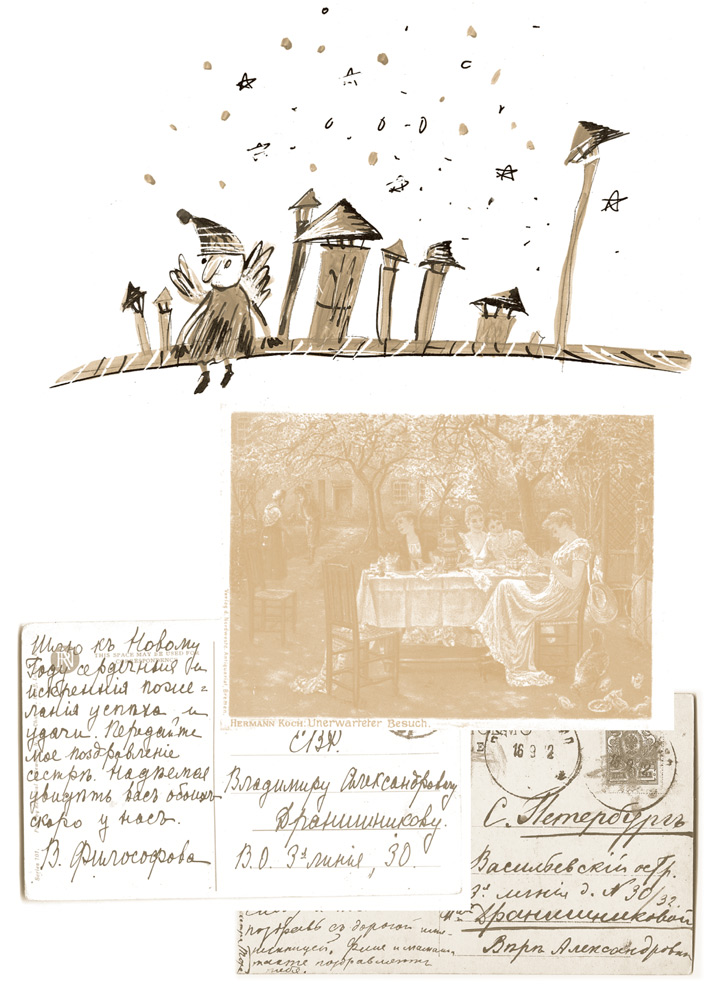 HERMANN KOCH: Unerwarteter Besuch.
THIS SPACE MAY BE USED FOR
Шлю къ Новому
Году сердечныя и
искреннія поже-
ланія успѣха и
удачи. Передайте
мое поздравленіе
сестрѣ. Надѣемся
увидѣть васъ обоихъ
скоро у насъ.
В. Философова
Владимиру Александровичу
Дранишникову.
В.О. 3я линія, 30.
16 9 12
С. Петербургъ
Васильевскій остр.
3я линія д. N 30/32.
Дранишниковой
Вѣрѣ Александровнѣ
поздравь съ дорогой имя-
нинницей.
также поздравляютъ
тебя.